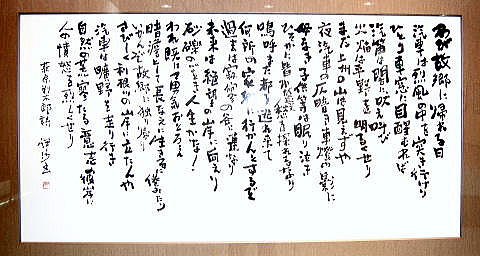 わが故郷に帰れる日
汽車は烈風の中を突き行けり
ひとり車窓に目醒むれば
汽笛は闇に吠え叫び
火焔は平野を明るくせり
まだ上州の山は見えずや
夜汽車の仄暗き車燈の影に
母なき子供等は眠り泣き
ひそかに皆わが憂愁を探れるなり
嗚呼また都を逃れ来て
何所の家郷に行かんとするぞ
過去は寂寥の谷に連なり
未来は絶望の岸に向えり
砂礫のごとき人生かな!
われ既に勇気おとろえ
暗憺として長なえに生きるに倦みたり
いかんぞ故郷に独り帰り
さびしくまた利根川の岸に立たんや
汽車は曠野を走り行き
自然の荒寥たる意志の彼岸に
人の憤怒を烈しくせり
萩原朔太郎詩